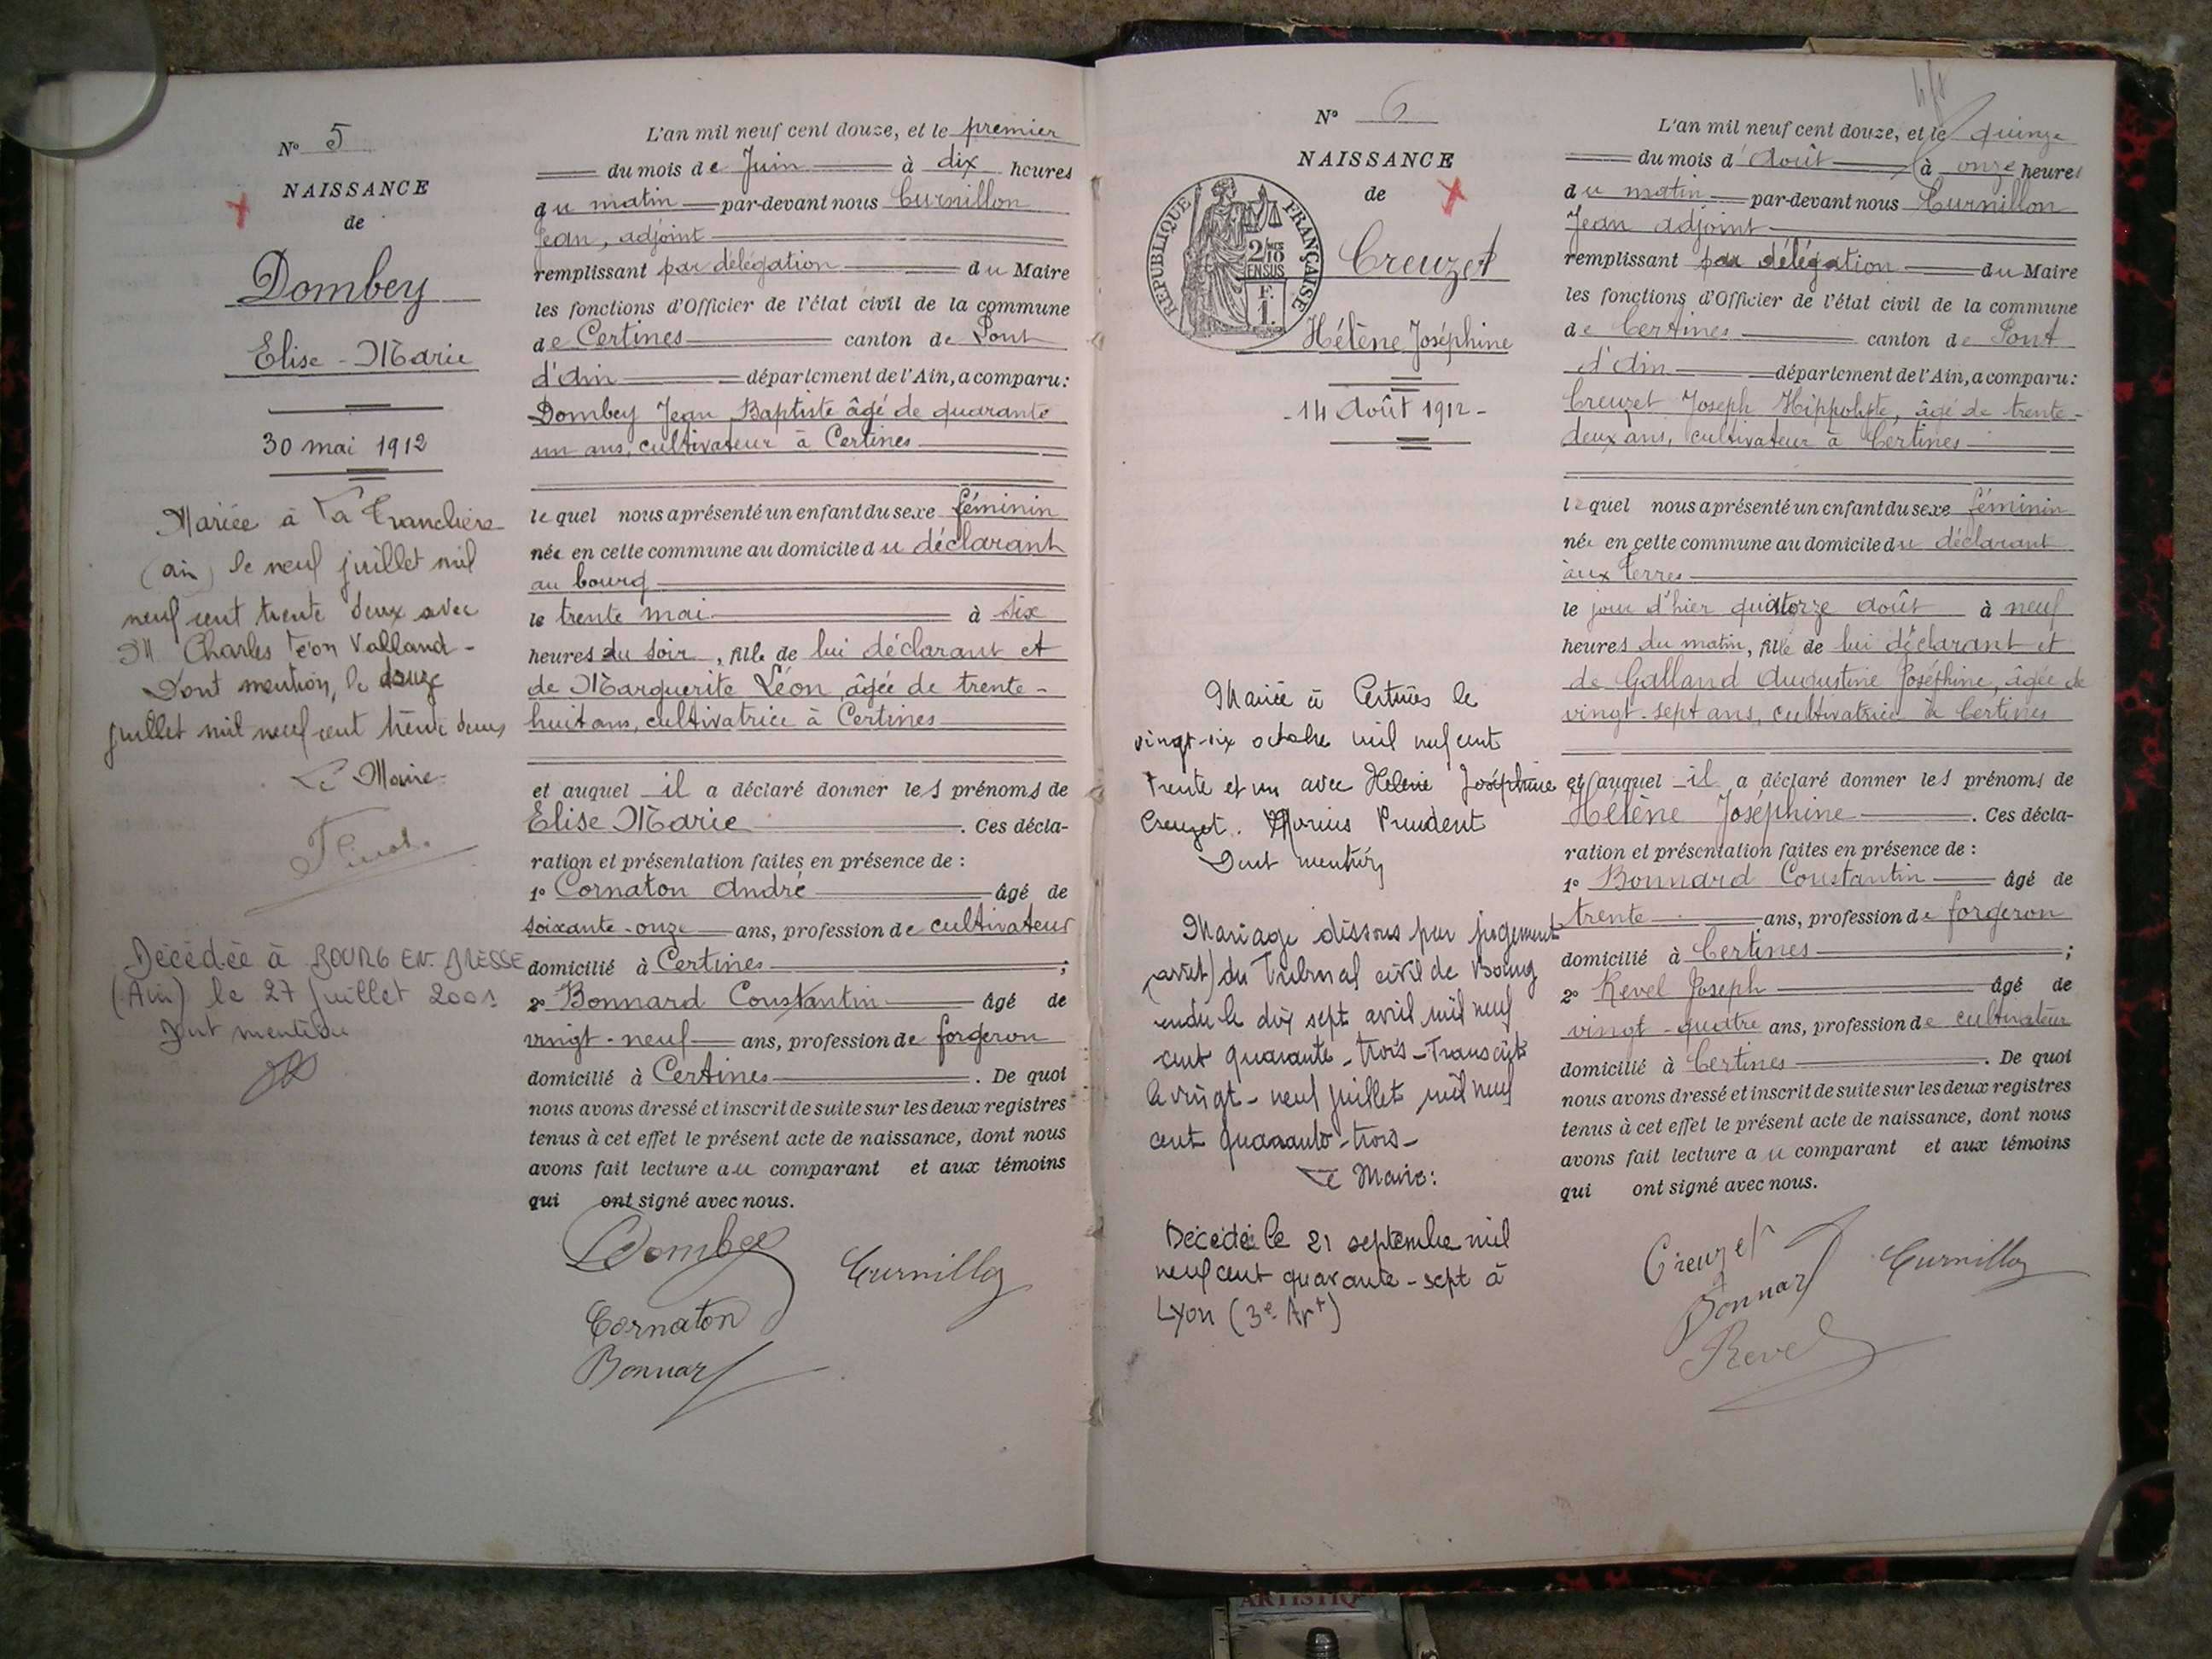 N° 5
NAISSANCE
de
Dombey
Elise-Marie
30 mai 1912
Mariée à La Tranclière
(ain) le neuf juillet mil
neuf cent trente deux avec
M Charles Léon Valland -
Dont mention, le douze
juillet mil neuf cent trente deux
Le Maire
Décédée à BOURG EN BRESSE
(Ain) le 27 juillet 2001
Dont mention
L'an mil neuf cent douze, et le premier
du mois de Juin à dix heures
du matin par-devant nous Curnillon
Jean, adjoint
remplissant par délégation du Maire
les fonctions d'Officier de l'état civil de la commune
de Certines canton de Pont
d'Ain département de l'Ain, a comparu:
Dombey Jean Baptiste âgé de quarante
un ans, cultivateur à Certines
lequel nous a présenté un enfant du sexe féminin
née en cette commune au domicile du déclarant
au bourg
le trente mai à six
heures du soir, fille de lui déclarant et
de Marguerite Léon, âgée de trente-
huit ans, cultivatrice à Certines
et auquel il a déclaré donner les prénoms de
Elise Marie. Ces décla-
ration et présentation faites en présence de :
1° Cornaton André âgé de
soixante-onze ans, profession de cultivateur
domicilié à Certines ;
2° Bonnard Constantin âgé de
vingt-neuf ans, profession de forgeron
domicilié à Certines. De quoi
nous avons dressé et inscrit de suite sur les deux registres
tenus à cet effet le présent acte de naissance, dont nous
avons fait lecture au comparant et aux témoins
qui ont signé avec nous.
Dombey
Curnillon
Cornaton
Bonnard
N° 6
NAISSANCE
de
REPUBLIQUE FRANÇAISE
2/10
EN SUS
F.
1.
Creuzet
Hélène Joséphine
-14 Août 1912-
Mariée à Certines le
vingt-six octobre mil neuf cent
trente et un avec Hélène Joséphine
Creuzet. Marius Prudent
Dont mention
Mariage dissous par jugement
(arrêt) du Tribunal civil de Bourg
rendu le dix sept avril mil neuf
cent quarante-trois-Transcrit
le vingt-neuf juillet mil neuf
cent quarante-trois-
Le Maire:
Décédée le 21 septembre mil
neuf cent quarante-sept à
Lyon (3e Art)
L'an mil neuf cent douze, et le quinze
du mois d'Août à onze heures
du matin par-devant nous Curnillon
Jean adjoint
remplissant par délégation du Maire
les fonctions d'Officier de l'état civil de la commune
de Certines canton de Pont
d'Ain département de l'Ain, a comparu:
Creuzet Joseph Hippolyte, âgé de trente-
deux ans, cultivateur à Certines
lequel nous a présenté un enfant du sexe féminin
née en cette commune au domicile du déclarant
aux Terres
le jour d'hier quatorze août à neuf
heures du matin, fille de lui déclarant et
de Galland Augustine Joséphine, âgée de
vingt-sept ans, cultivatrice à Certines
et auquel il a déclaré donner les prénoms de
Hélène Joséphine. Ces décla-
ration et présentation faites en présence de :
1° Bonnard Constantin âgé de
trente ans, profession de forgeron
domicilié à Certines ;
2° Revel Joseph âgé de
vingt-quatre ans, profession de cultivateur
domicilié à Certines. De quoi
nous avons dressé et inscrit de suite sur les deux registres
tenus à cet effet le présent acte de naissance, dont nous
avons fait lecture au comparant et aux témoins
qui ont signé avec nous.
Creuzet
Curnillon
Bonnard
Revel
ARTISTIQ